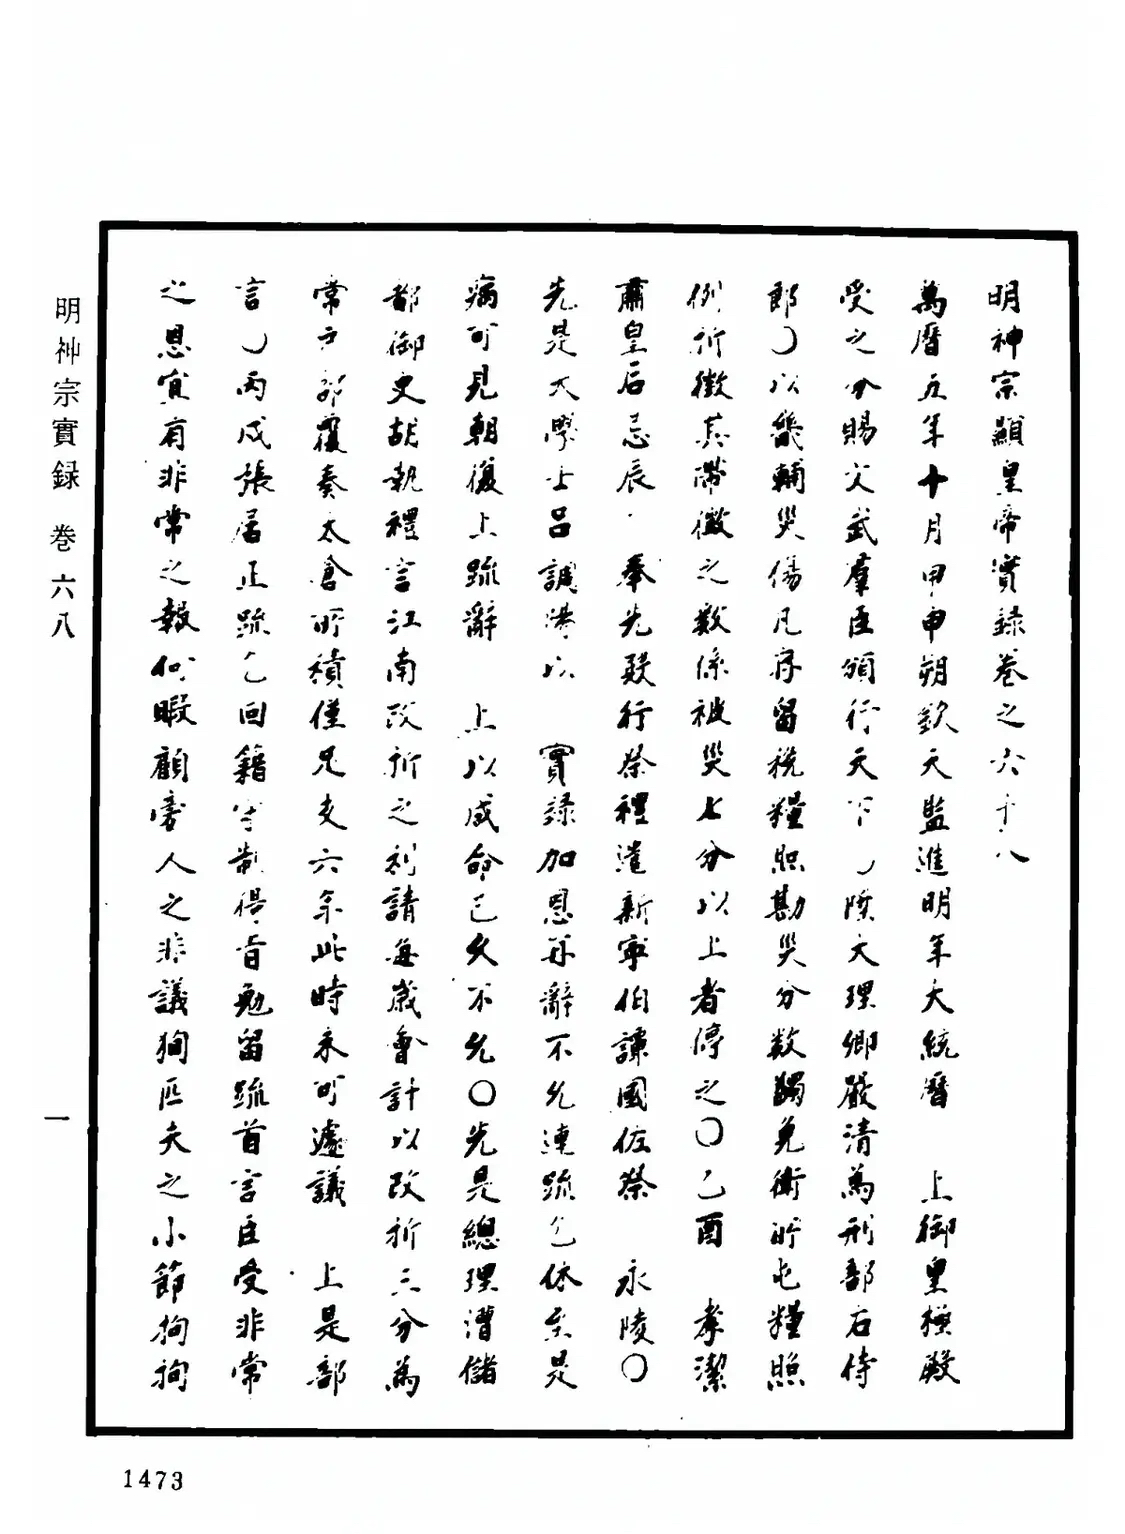 明神宗顯皇帝實錄卷之六十八
萬曆五年十月甲申朔欽天監進明年大統曆　上御皇極殿
受之分賜文武羣臣頒行天下〇陞大理卿嚴清為刑部右侍
郎〇以畿輔災傷凡存留稅糧照勘災分數蠲免衛所屯糧照
例折徵其帶徵之數係被災七分以上者停之〇乙酉　孝潔
肅皇后忌辰　奉先殿行祭禮遣新寧伯譚國佐祭　永陵〇
先是大學士呂調陽以　實錄加恩再辭不允連疏乞休至是
病可見朝復上疏辭　上以成命已久不允〇先是總理漕儲
都御史胡執禮言江南改折之利請每歲會計以改折三分為
常戶部覆奏太倉所積僅足支六年此時未可遽議　上是部
言〇丙戌張居正疏乞回籍守制得旨勉留疏首言臣受非常
之恩宜有非常之報何暇顧旁人之非議狥匹夫之小節拘拘
明神宗實錄　卷六八
一
1473